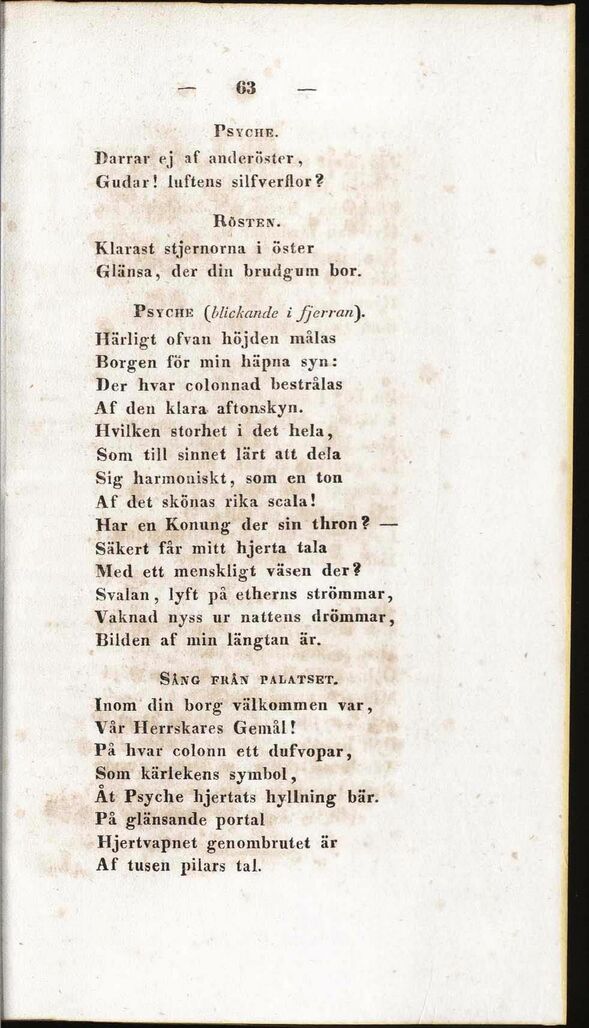 — 63 —
PSYCHE.
Darrar ej af anderöster,
Gudar! luftens silfverflor?
RÖSTEN.
Klarast stjernorna i öster
Glänsa, der din brudgum bor.
PSYCHE (blickande i fjerran).
Härligt ofvan höjden målas
Borgen för min häpna syn:
Der hvar colonnad bestrålas
Af den klara aftonskyn.
Hvilken storhet i det hela,
Som till sinnet lärt att dela
Sig harmoniskt, som en ton
Af det skönas rika scala!
Har en Konung der sin thron? —
Säkert får mitt hjerta tala
Med ett menskligt väsen der?
Svalan, lyft på etherns strömmar,
Vaknad nyss ur nattens drömmar,
Bilden af min längtan är.
SÅNG FRÅN PALATSET.
Inom din borg välkommen var,
Vår Herrskares Gemål!
På hvar colonn ett dufvopar,
Som kärlekens symbol,
Åt Psyche hjertats hyllning bär.
På glänsande portal
Hjertvapnet genombrutet är
Af tusen pilars tal.